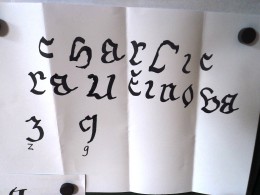 charlie
raučinova
z g
z g